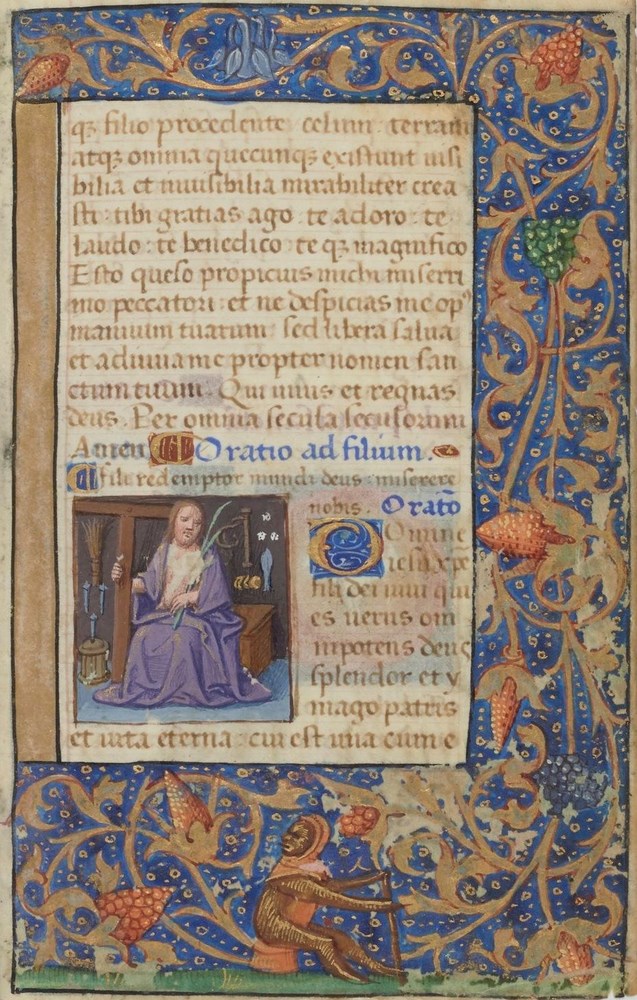 q; filio procedente celum: terram
atq; omnia quecunq; existunt uisi
bilia et inuisibilia mirabiliter crea
sti: tibi gratias ago: te adoro: te
laudo: te benedico: te q; magnifico
Esto queso propicius michi miserri
mo peccatori: et ne despicias me op⁹
manuum tuarum: sed libera salua
et adiuua me propter nomen san
ctum tuum. Qui uiuis et regnas
deus. Per omnia secula seculorum
Amen Oratio ad filium.
Fili redemptor mundi deus miserere
nobis. Oratō
O Domine
iesu xp̄e
fili dei uiui qui
es uerus om
nipotens deus
splendor et y
mago patris
et uita eterna: cui est una cum e